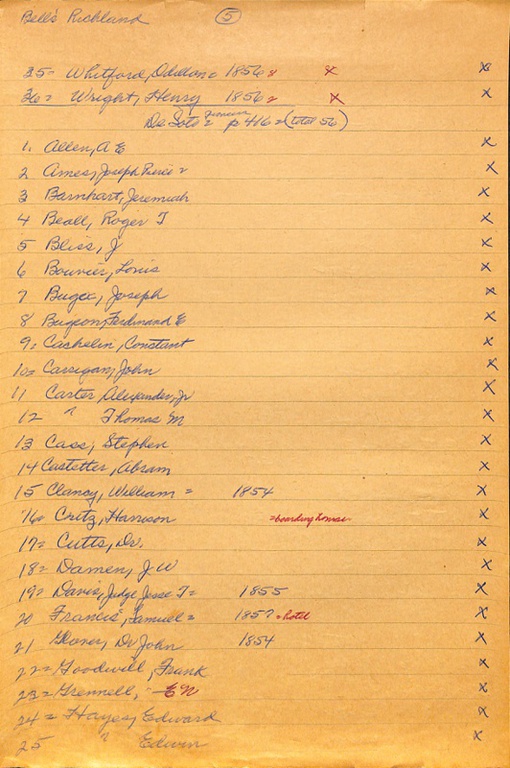 Bell's Richland 5
35= Whitford, 1856= x x
36= Wright, Henry 1856= x x
De Soto = pioneers p 416 = (total 56)
1. Allen, A E x
2 Ames, Joseph Pierce = x
3 Barnhart, Jeremiah x
4 Beall, Roger T x
5 Bliss, J x
6 Bouvier, Louis x
7 Joseph x
8 Ferdinand E x
9. Cachelin, Constant x
10= John x
11 Carter Alexander, Jr x
12 " Thomas M x
13 Cass, Stephen x
14 Castetter, Abram x
15 Clancy, William = 1854 x
16= Critz, Harrison =boarding house x
17= Cutts, Dr. x
18= Damen, J W x
19= Davis, Judge Jesse T= 1855 x
20 Francis, Samuel = 1857 =hotel x
21 Glover, Dr John 1854 x
22= Goodwill, Frank x
23= Grennell, E N x
24= Hayes, Edward x
25 " Edwin x